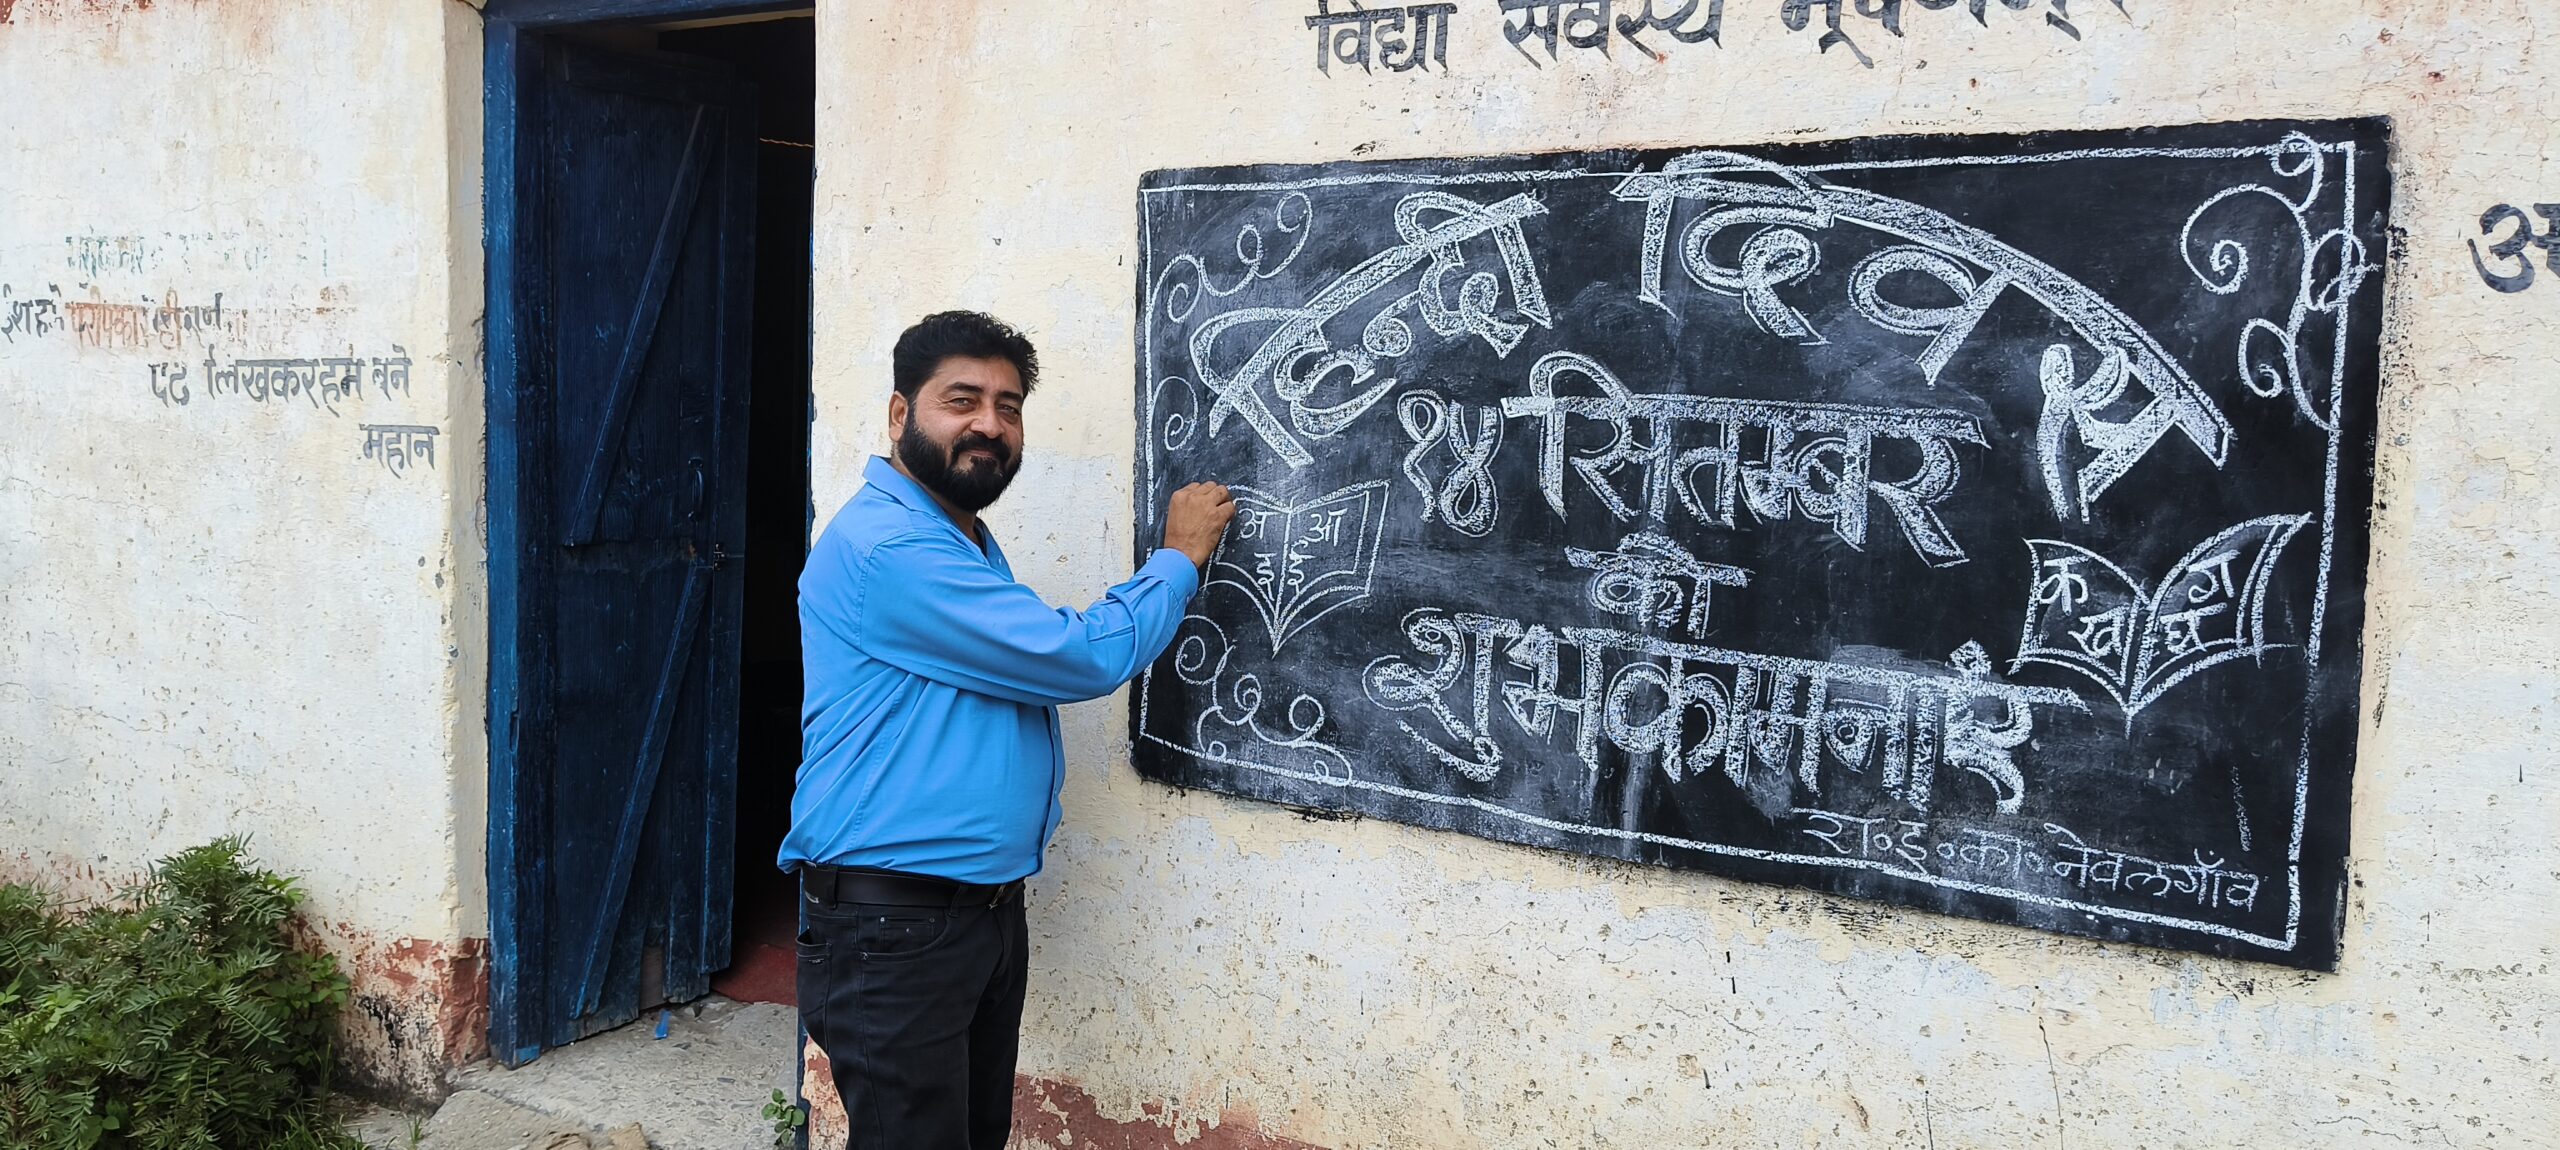 विद्या सर्वस्य भूषणम्
पढ़ लिखकर हम बने
महान
हिन्दी दिवस
१४ सितम्बर
की
शुभकामनाएं
अ आ
इ ई
क ग
ख घ
रा॰इ॰का॰ मेवलगाँव